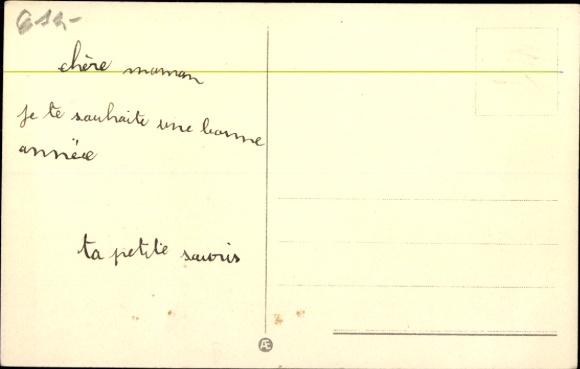 612.-
chère maman
je te souhaite une bonne
année
ta petite souris
Æ